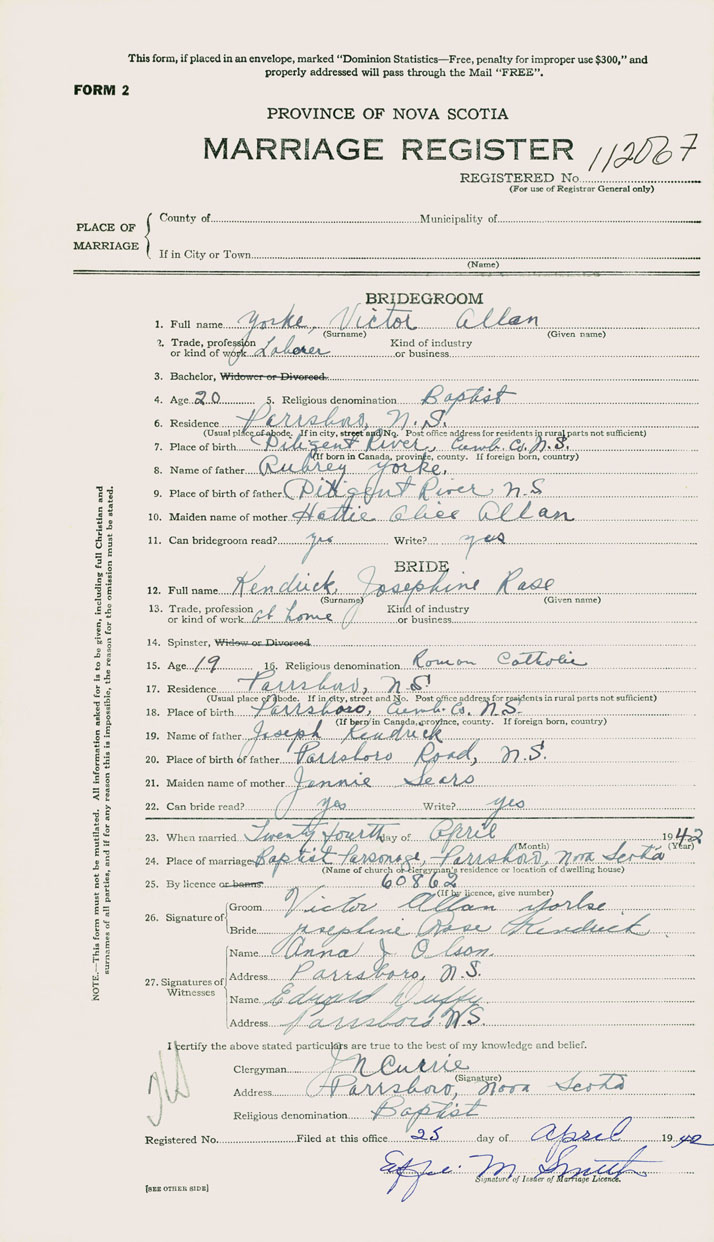 This form, if placed in an envelope, marked "Dominion Statistics—Free, penalty for improper use $300," and
properly addressed will pass through the Mail "FREE".
FORM 2
PROVINCE OF NOVA SCOTIA
MARRIAGE REGISTER
REGISTERED No. 112067
(For use of Registrar General only)
PLACE OF MARRIAGE
County of Municipality of
If in City or Town
(Name)
BRIDEGROOM
1. Full name Yorke, Victor Allan
(Surname) (Given name)
2. Trade, profession or kind of work Laborer Kind of industry or business
3. Bachelor, Widower or Divorced
4. Age 20 5. Religious denomination Baptist
6. Residence Parrsboro, N.S.
(Usual place of abode. If in city, street and No. Post office address for residents in rural parts not sufficient)
7. Place of birth Diligent River, Cumb. Co. N.S.
(If born in Canada, province, county. If foreign born, country)
8. Name of father Aubrey Yorke.
9. Place of birth of father Diligent River N.S
10. Maiden name of mother Hattie Alice Allan
11. Can bridegroom read? yes Write? yes
BRIDE
12. Full name Kendrick, Josephine Rose
(Surname) (Given name)
13. Trade, profession or kind of work at home Kind of industry or business
14. Spinster, Widow or Divorced
15. Age 19 16. Religious denomination Roman Catholic
17. Residence Parrsboro, N.S.
(Usual place of abode. If in city, street and No. Post office address for residents in rural parts not sufficient)
18. Place of birth Parrsboro, Cumb. Co. N.S.
(If born in Canada, province, county. If foreign born, country)
19. Name of father Joseph Kendrick
20. Place of birth of father Parrsboro Road, N.S.
21. Maiden name of mother Jennie Sears
22. Can bride read? yes Write? yes
23. When married Twenty Fourth day of April 1942
(Month) (Year)
24. Place of marriage Baptist Parsonage, Parrsboro, Nova Scotia
(Name of church or clergyman's residence or location of dwelling house)
25. By licence or banns 60862
(If by licence, give number)
26. Signature of
Groom Victor Allan Yorke
Bride Josephine Rose Kendrick
27. Signatures of Witnesses
Name Anna J Olson
Address Parrsboro, N.S.
Name Edward Duffy
Address Parrsboro N.S.
I certify the above stated particulars are true to the best of my knowledge and belief.
Clergyman J N Currie
(Signature)
Address Parrsboro, Nova Scotia
Religious denomination Baptist
Registered No. Filed at this office 25 day of April 1942
Effie M Smith
Signature of Issuer of Marriage Licence.
[SEE OTHER SIDE]
NOTE.—This form must not be mutilated. All information asked for is to be given, including full Christian and
surnames of all parties, and if for any reason this is impossible, the reason for the omission must be stated.